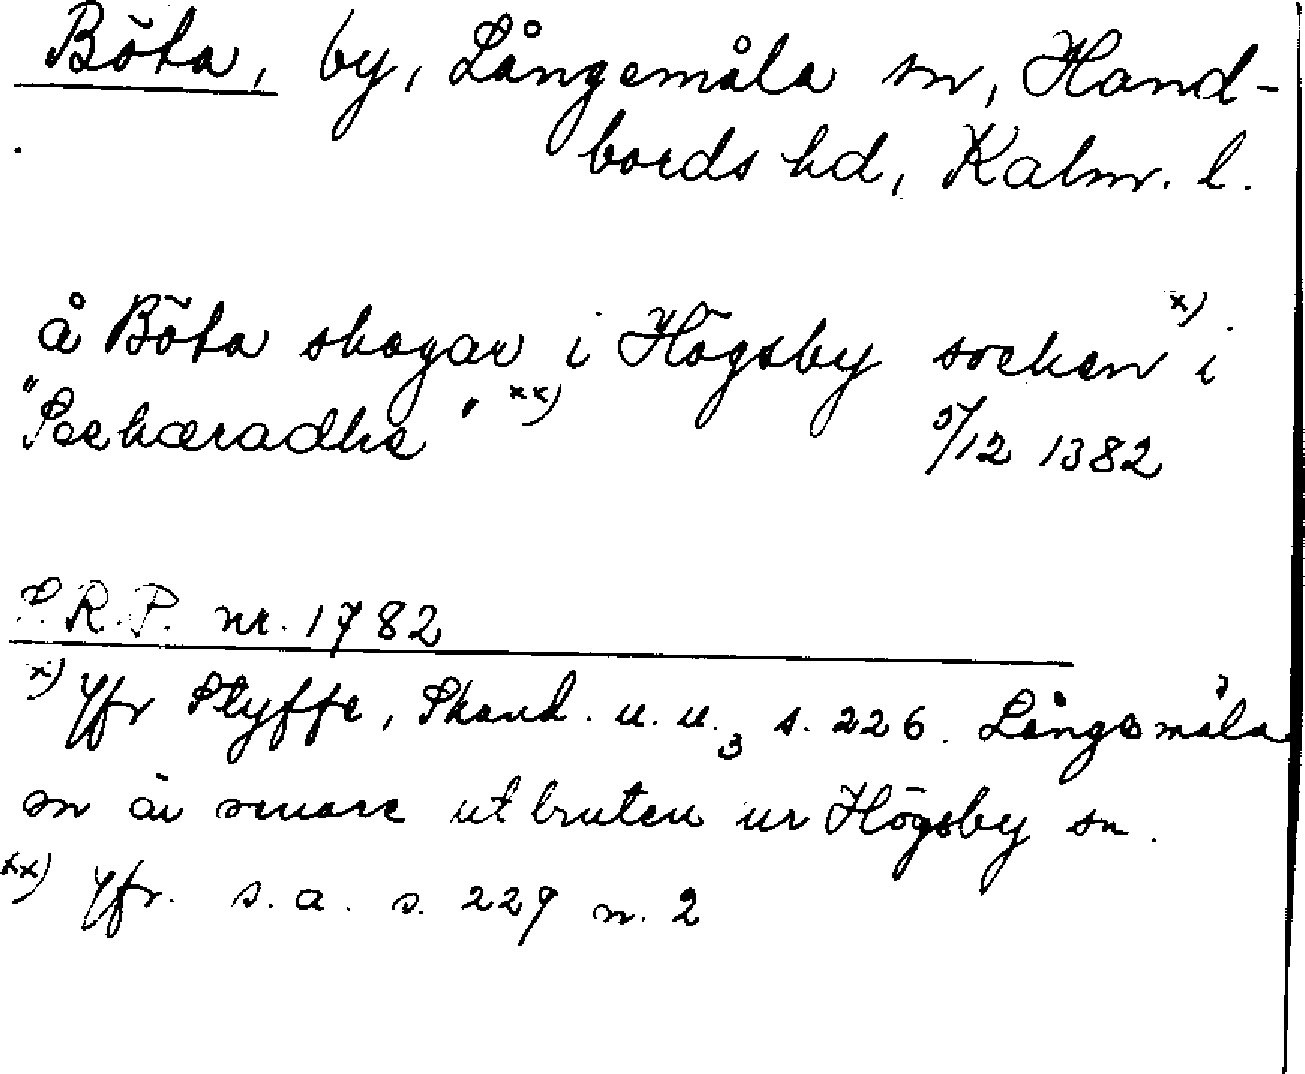 Böta, by, Långemåla sn, Hand-
bords hd, Kalm. l.
å Böta skogar i Högsby socken x) i
"Sechæradhe" xx) 5/12 1382
S.R.P. nr. 1782
x) Jfr Styffe, Skand. u. u. 3 s. 226. Långemåla
sn är senare utbruten ur Högsby sn.
xx) Jfr. s. a. s. 229 n. 2